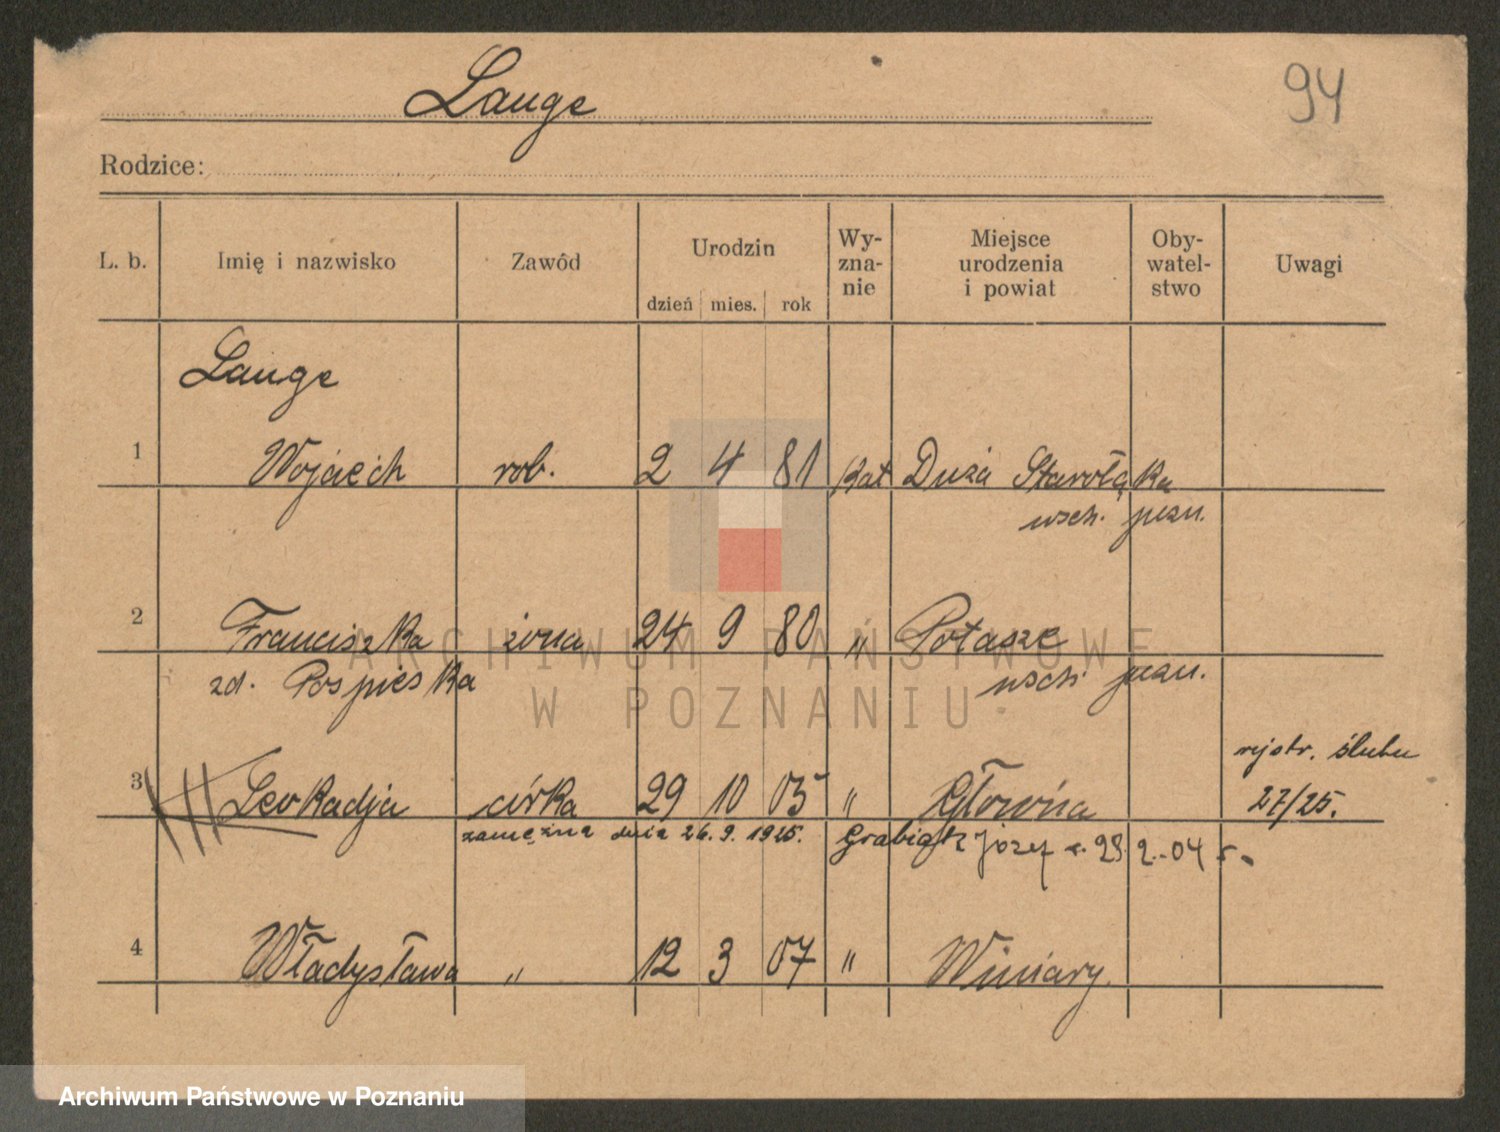 Lange
94
Rodzice:
L. b. Imię i nazwisko Zawód Urodzin dzień mies. rok Wy-zna-nie Miejsce urodzenia i powiat Oby-watel-stwo Uwagi
Lange
1 Wojciech rob. 2 4 81 kat Duża Starołęka
wsch. pozn.
2 Franciszka żona 24 9 80 " Potasze
zd. Pospieska wsch. pozn.
rejstr. ślubu
3 Leokadja córka 29 10 05 " Główna 27/25.
zamężna dnia 26.9.1925. Grabiąk Józef 04 r.
4 Władysława " 12 3 07 " Winiary.
ARCHIWUM PAŃSTWOWE
W POZNANIU
Archiwum Państwowe w Poznaniu